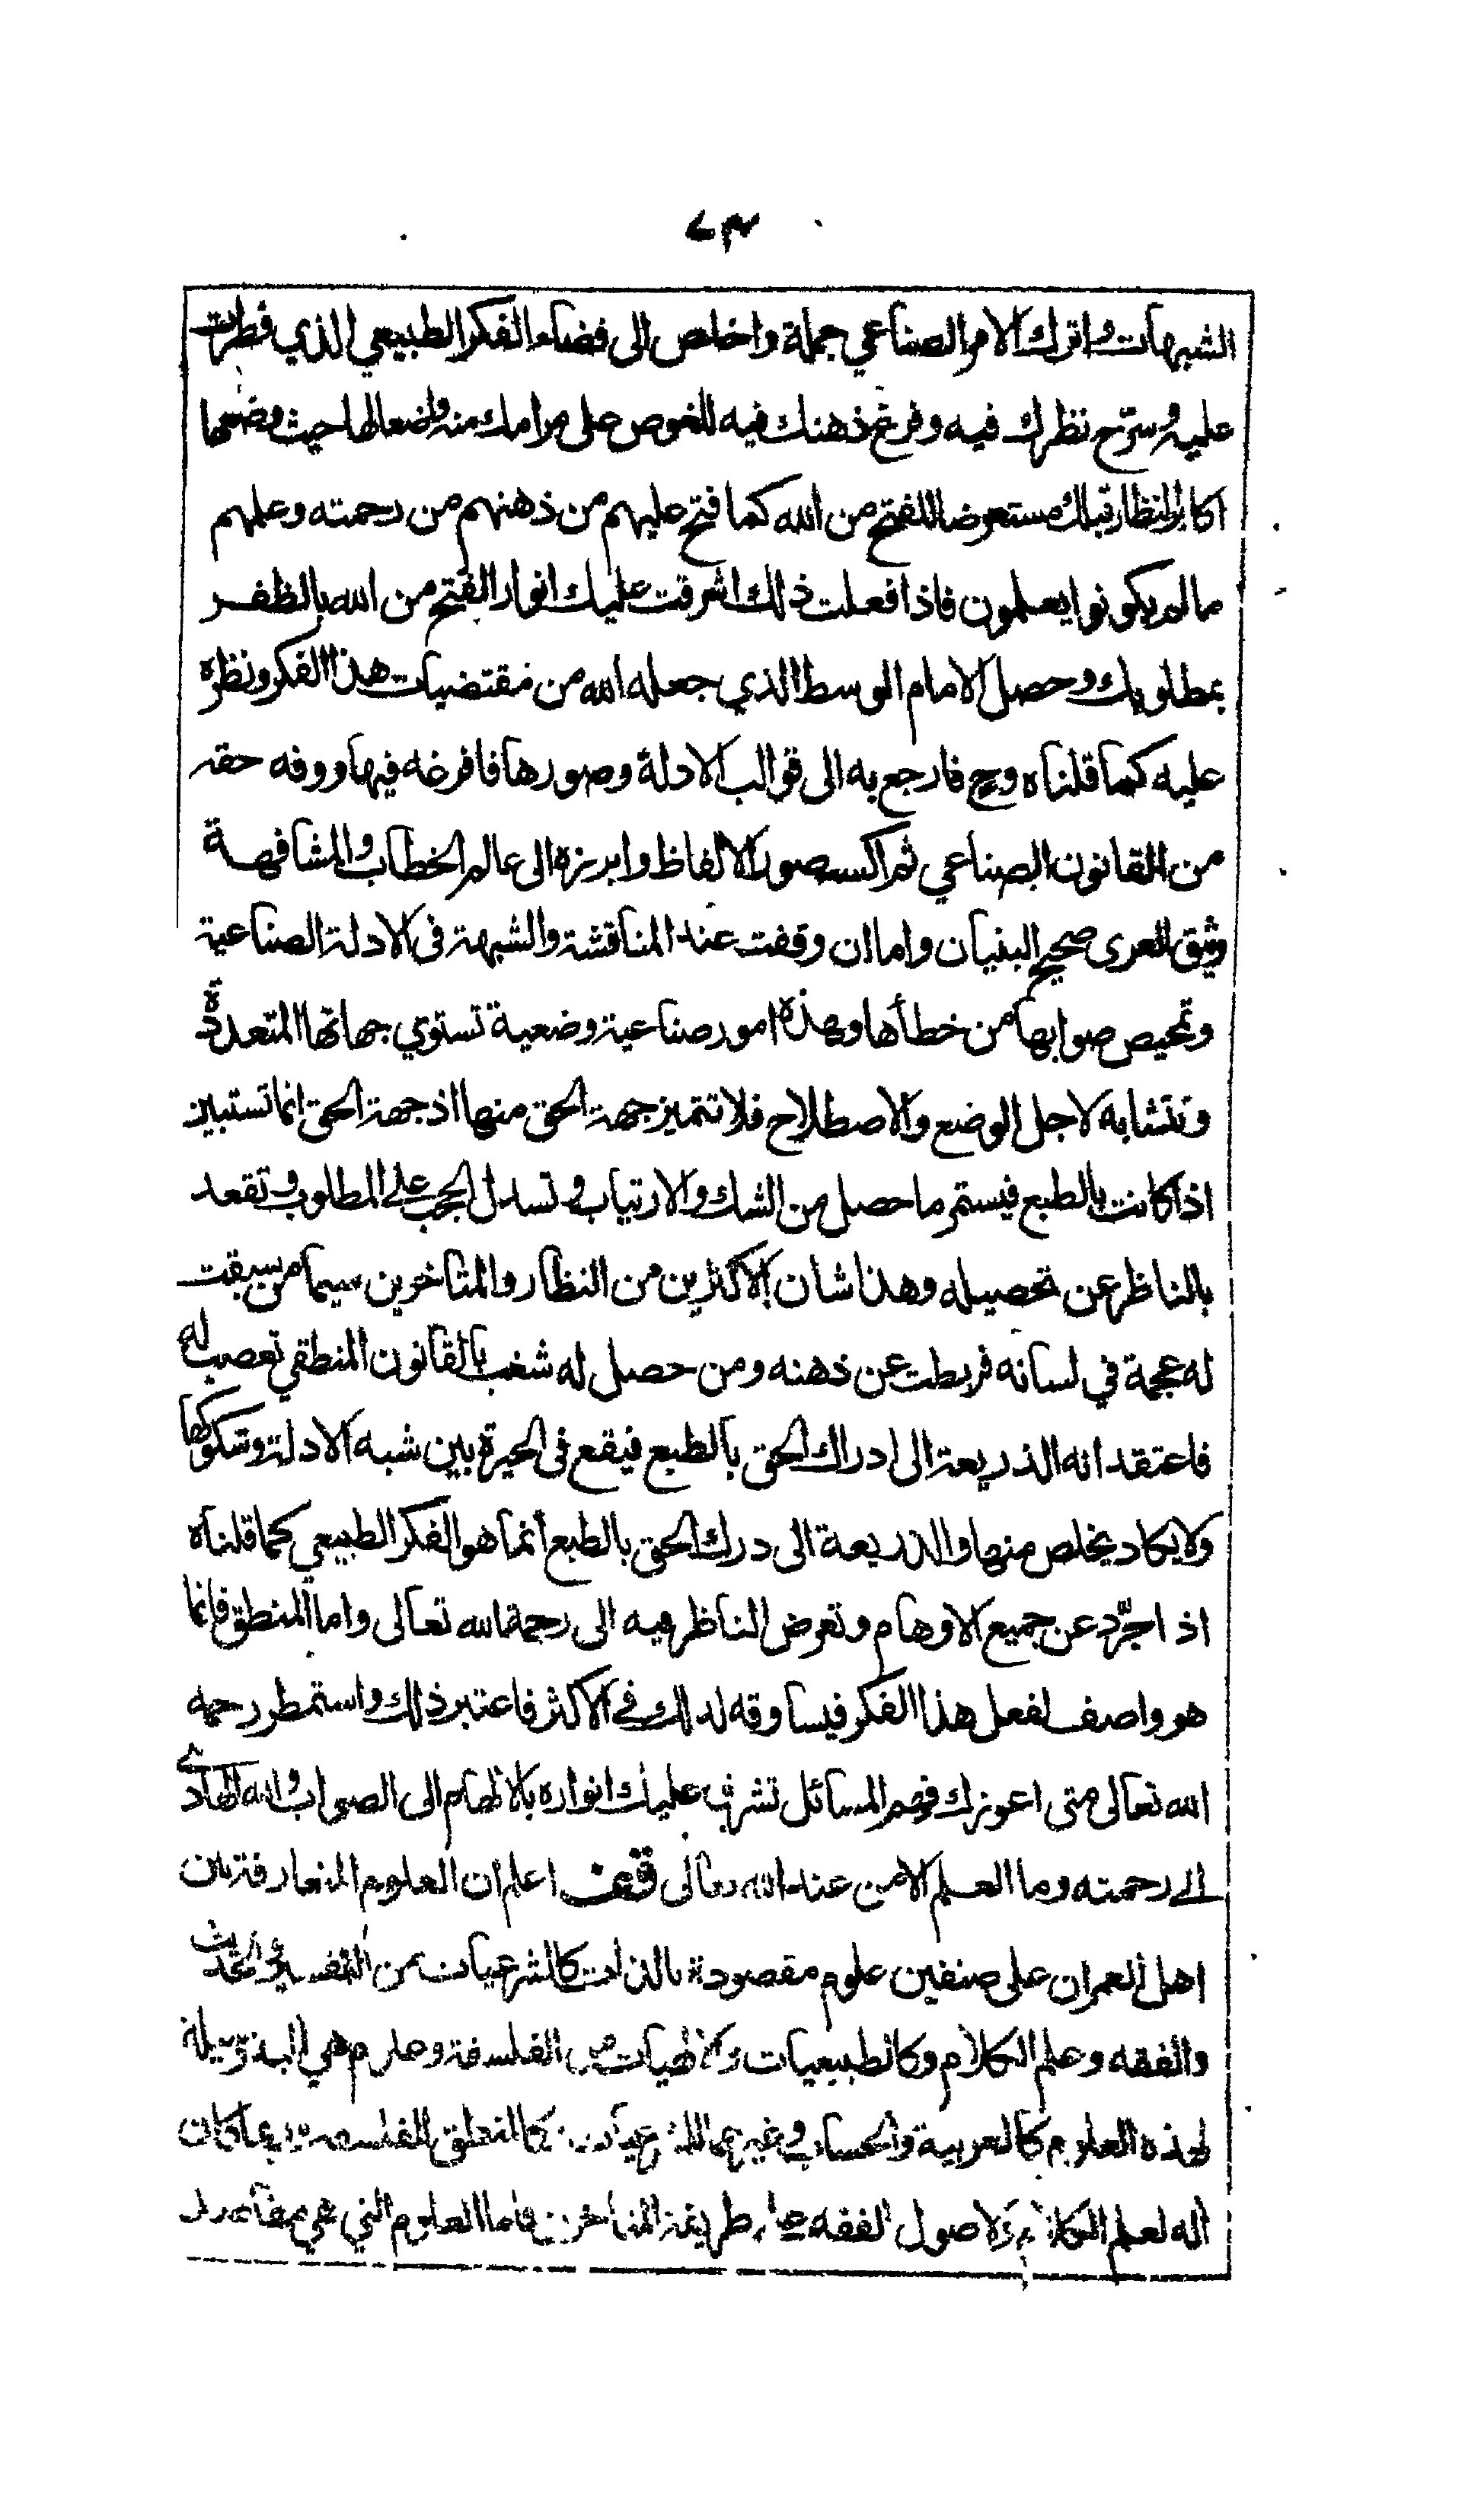 ٧٣
الشبهات واترك الامر الصناعي جملة واخلص الى فضاء الفكر الطبيعي الذي فطرت
عليه وسرّح نظرك فيه وفرغ ذهنك فيه للغوص على مرامك منه واضعا لها حيث وضعها
اكابر النظار قبلك مستعرضا للفتح من الله كما فتح عليهم من ذهنهم من رحمته وعلمهم
مالم يكونوا يعلمون فاذا فعلت ذلك اشرقت عليك انوار الفتح من الله بالظفر
بمطلوبك وحصل الامام الوسط الذي جعله الله من مقتضيات هذا الفكر ونظره
عليه كما قلناه وح فارجع به الى قوالب الادلة وصورها فافرغه فيها ووفه حقه
من القانون الصناعي ثم اكسه صور الالفاظ وابرزه الى عالم الخطاب والمشافهة
وثيق العرى صحيح البنيان واما ان وقفت عند المناقشة والشبهة في الادلة الصناعية
وتمحيص صوابها من خطأها وهذه امور صناعية وضعية تستوي جهاتها المتعددة
وتتشابه لاجل الوضع والاصطلاح فلا تتميز جهة الحق منها اذ جهة الحق انما تستبين
اذا كانت بالطبع فيستمر ما حصل من الشك والارتياب وتسدل الحجب على المطلوب وتقعد
بالناظر عن تحصيله وهذا شان الاكثرين من النظار والمتاخرين سيما من سبقت
له عجمة في لسانه فربطت عن ذهنه ومن حصل له شغب بالقانون المنطقي تعصب له
فاعتقد انه الذريعة الى ادراك الحق بالطبع فيقع في الحيرة بين شبه الادلة وشكوكها
ولا يكاد يخلص منها والذريعة الى درك الحق بالطبع أنما هو الفكر الطبيعي كما قلناه
اذا جرّد عن جميع الاوهام وتعرض الناظر فيه الى رحمة الله تعالى واما المنطق فانما
هو واصف لفعل هذا الفكر فيساوقه لذلك في الاكثر فاعتبر ذلك واستمطر رحمه
الله تعالى متى اعوزك فهم المسائل تشرف عليك انواره بالالهام الى الصواب والله الهادي
الى رحمته وما العلم الا من عند الله تعالى قف اعلم ان العلوم المتعارفة بين
اهل العمران على صنفين علوم مقصودة بالذات كالشرعيات من التفسير والحديث
والفقه وعلم الكلام وكالطبيعيات والالهيات من الفلسفة وعلوم هي الية وسيلة
لهذه العلوم كالعربية والحساب وغيرهما للشرعيات كالمنطق للفلسفة وربما كان
اله لعلم الكلام ولاصول الفقه على طريقة المتاخرين فاما العلوم التي هي مقاصد